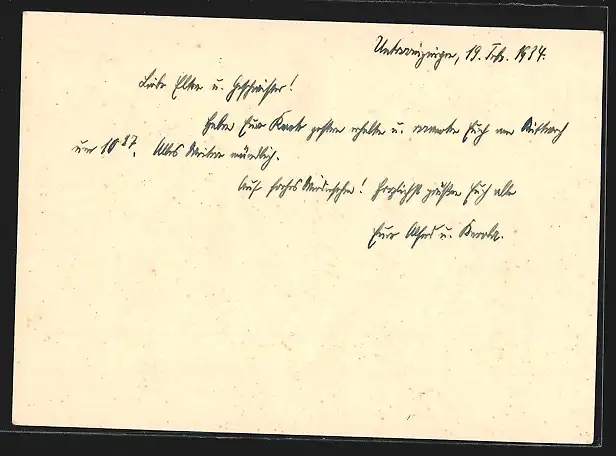 19. Feb. 1934.
Liebe Eltern u. Geschwister!
Haben Eure Karte gestern erhalten u. erwarten Euch am Mittwoch
um 10 37. Alles Weitere mündlich.
Auf frohes Wiedersehen! Herzlichst grüßen Euch alle
Eure Alfred u.